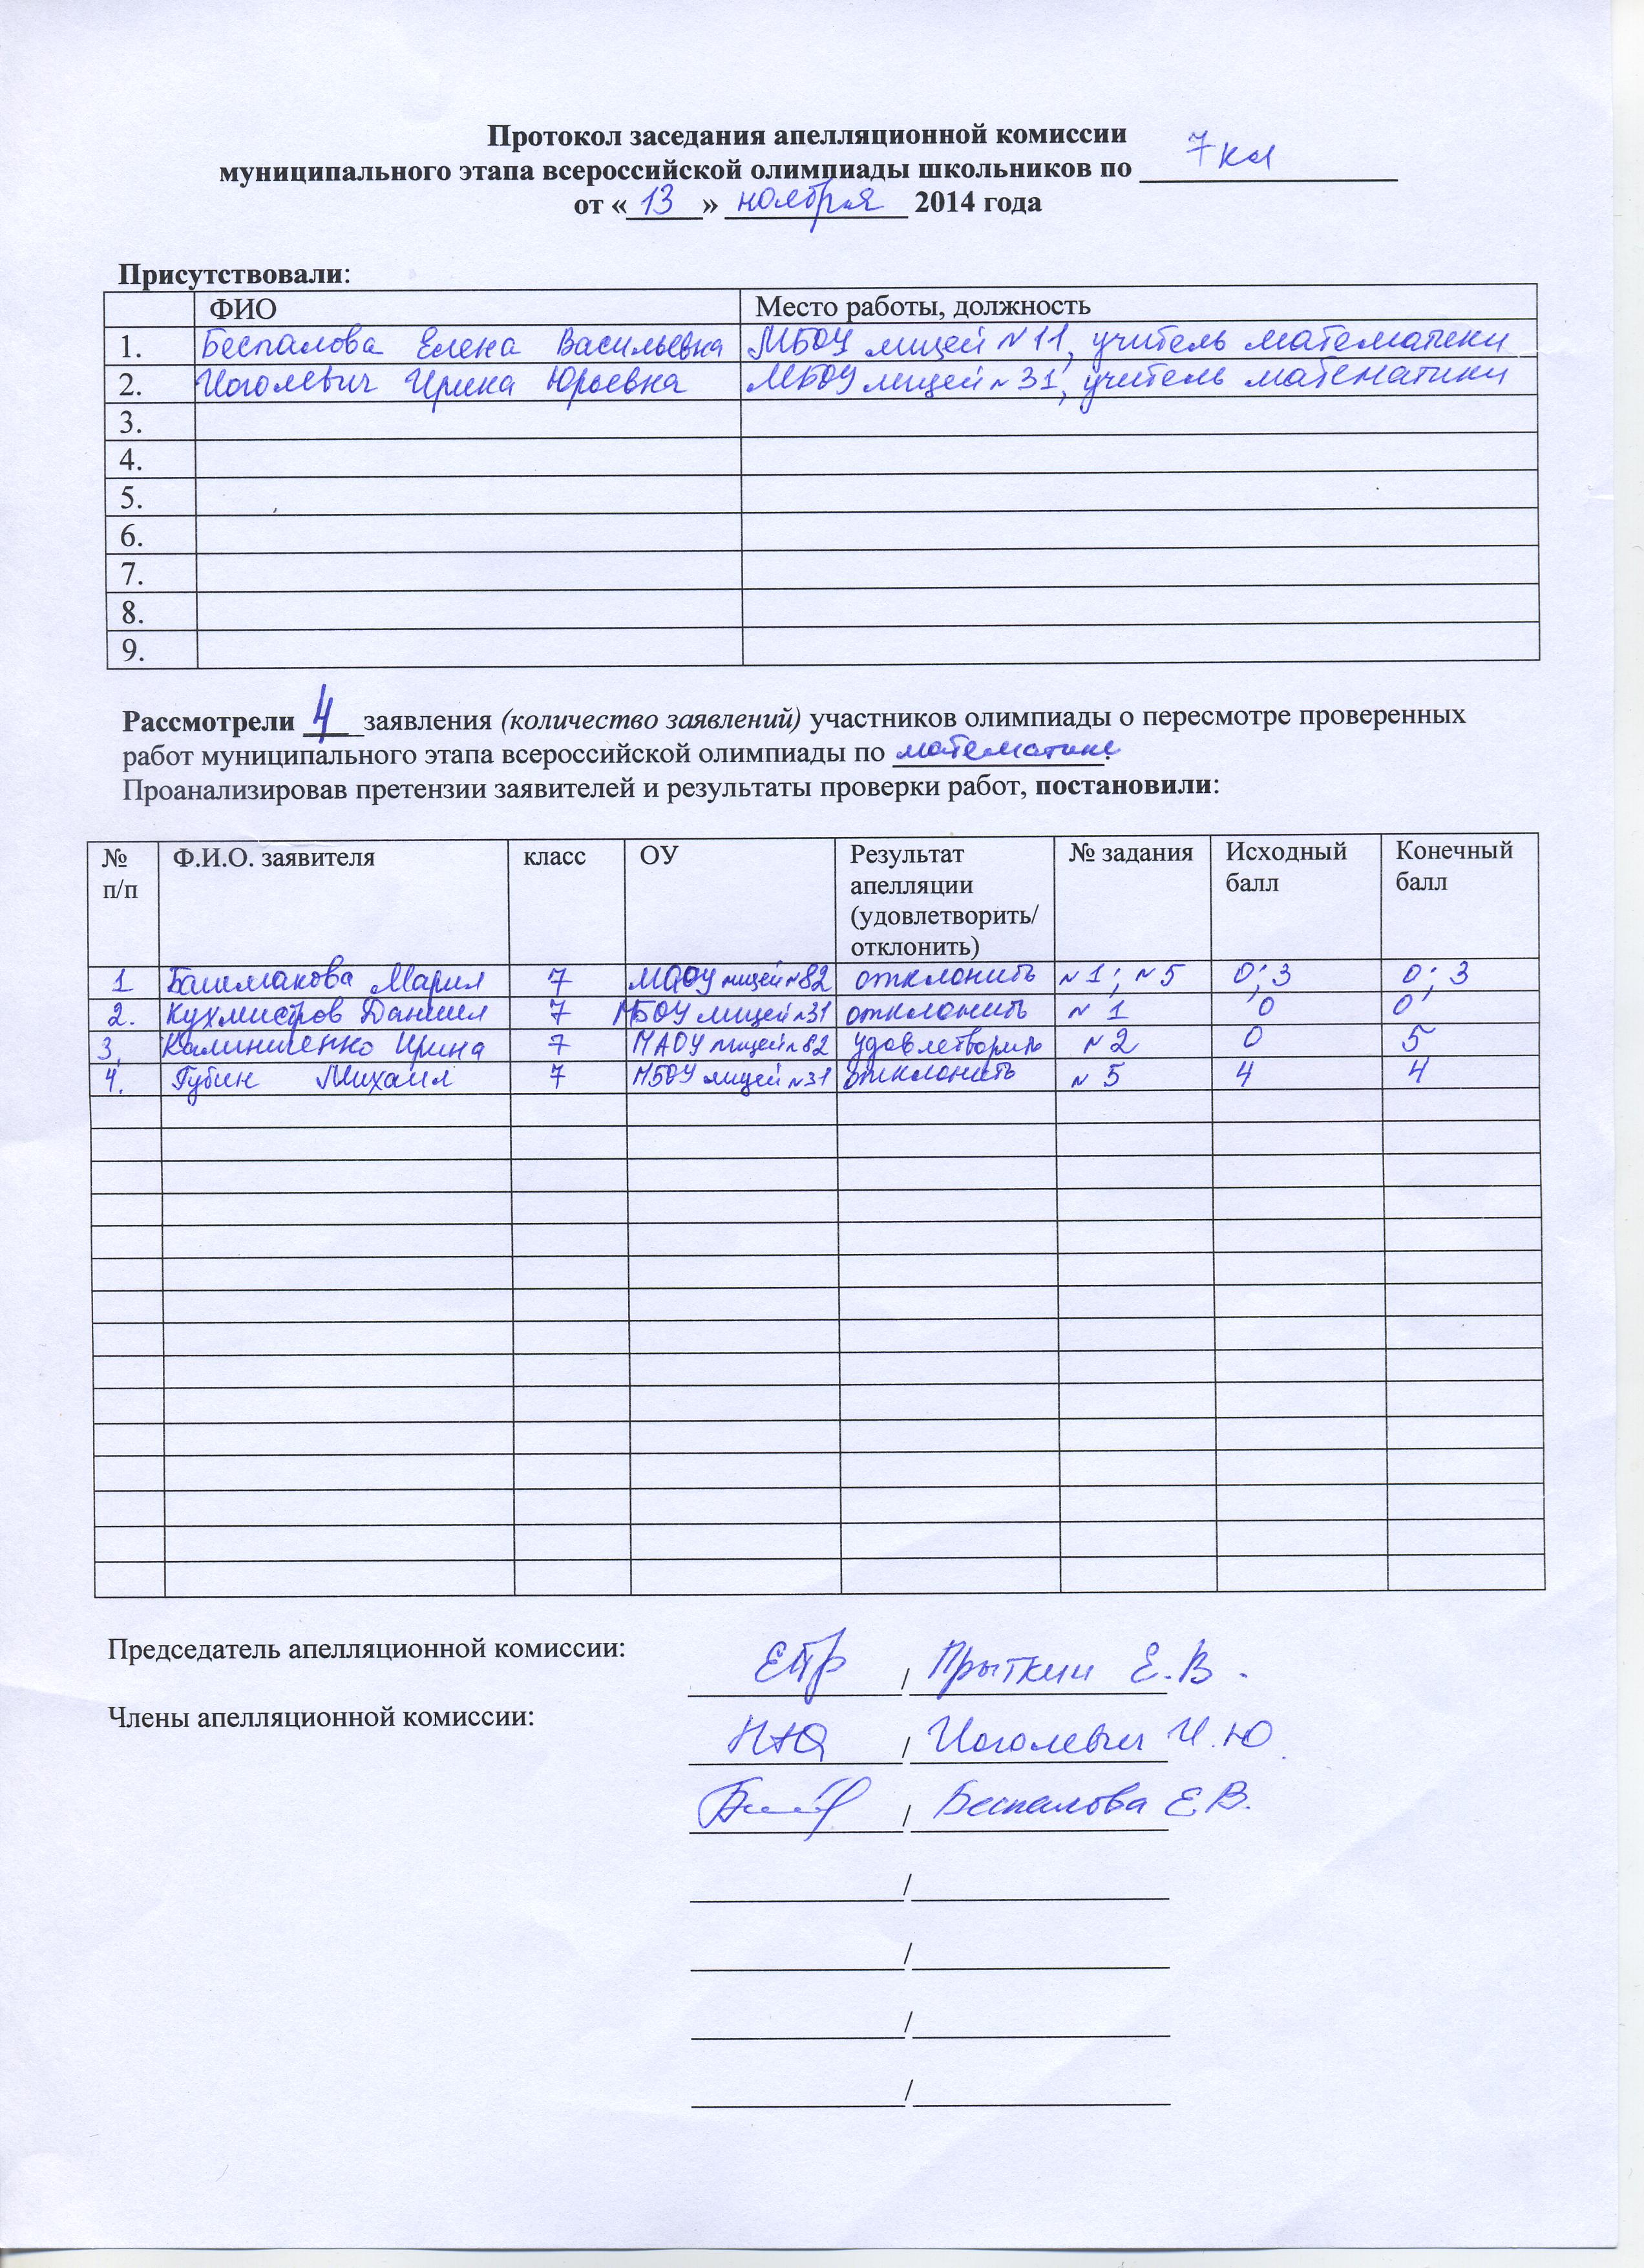 Протокол заседания апелляционной комиссии
муниципального этапа всероссийской олимпиады школьников по 7 кл
от «13» ноября 2014 года
Присутствовали:
ФИО Место работы, должность
1. Беспалова Елена Васильевна МБОУ лицей №11, учитель математики
2. Иоголевич Ирина Юрьевна МБОУ лицей №31, учитель математики
3.
4.
5.
6.
7.
8.
9.
Рассмотрели 4 заявления (количество заявлений) участников олимпиады о пересмотре проверенных
работ муниципального этапа всероссийской олимпиады по математике.
Проанализировав претензии заявителей и результаты проверки работ, постановили:
№ п/п Ф.И.О. заявителя класс ОУ Результат апелляции (удовлетворить/ отклонить) № задания Исходный балл Конечный балл
1 Башмакова Мария 7 МАОУ лицей №82 отклонить №1; №5 0; 3 0; 3
2. Кухмистров Даниил 7 МБОУ лицей №31 отклонить №1 0 0
3. Калиниченко Ирина 7 МАОУ лицей №82 удовлетворить №2 0 5
4. Губин Михаил 7 МБОУ лицей №31 отклонить №5 4 4
Председатель апелляционной комиссии: / Прыткин Е.В.
Члены апелляционной комиссии: / Иоголевич И.Ю.
/ Беспалова Е.В.
/
/
/
/